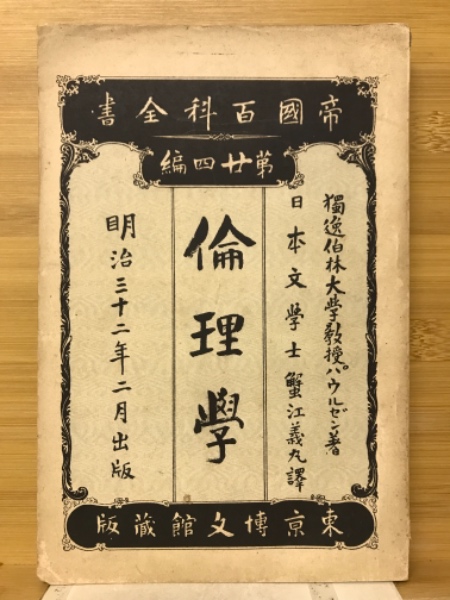 帝國百科全書
第廿四編
獨逸伯林大學敎授パウルゼン著
日本文學士蟹江義丸譯
倫理學
明治三十二年二月出版
東京博文館藏版